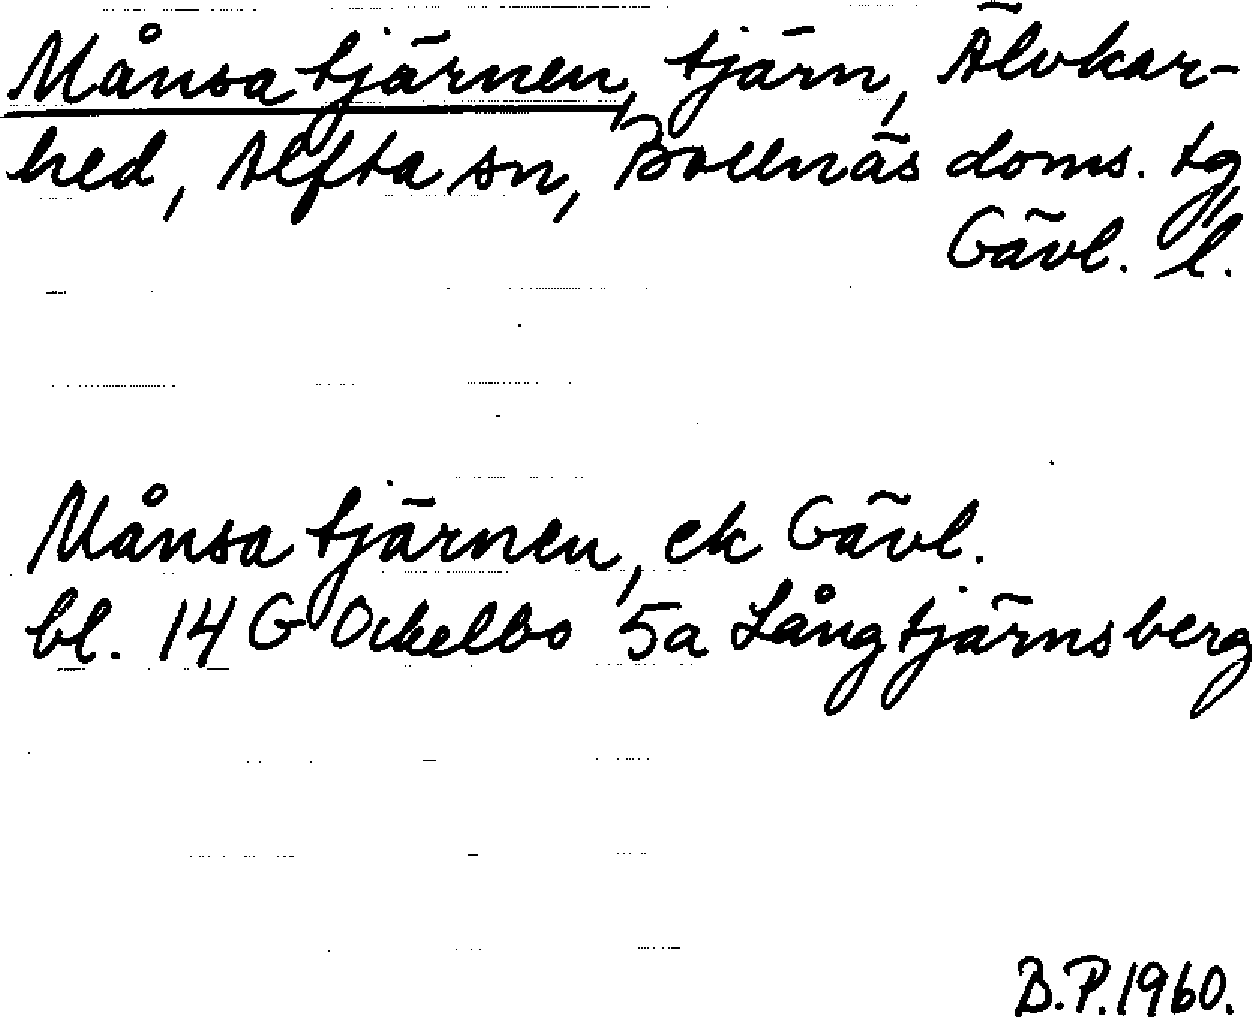 Månsatjärnen, tjärn, Älvkar-
hed, Alfta sn, Bollnäs doms. tg,
Gävl. l.
Månsatjärnen, ek Gävl.
bl. 14 G Ockelbo 5a Långtjärnsberg
B.P. 1960.